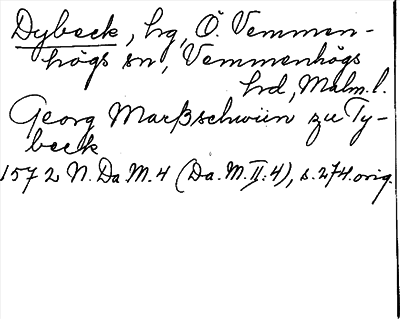 Dybeck, hg, Ö. Vemmen-
högs sn, Vemmenhögs
hrd, Malm. l.
Georg Marßschwiin zu Ty-
beck
1572 N. Da M. 4 (Da. M. II: 4), s. 274. orig.